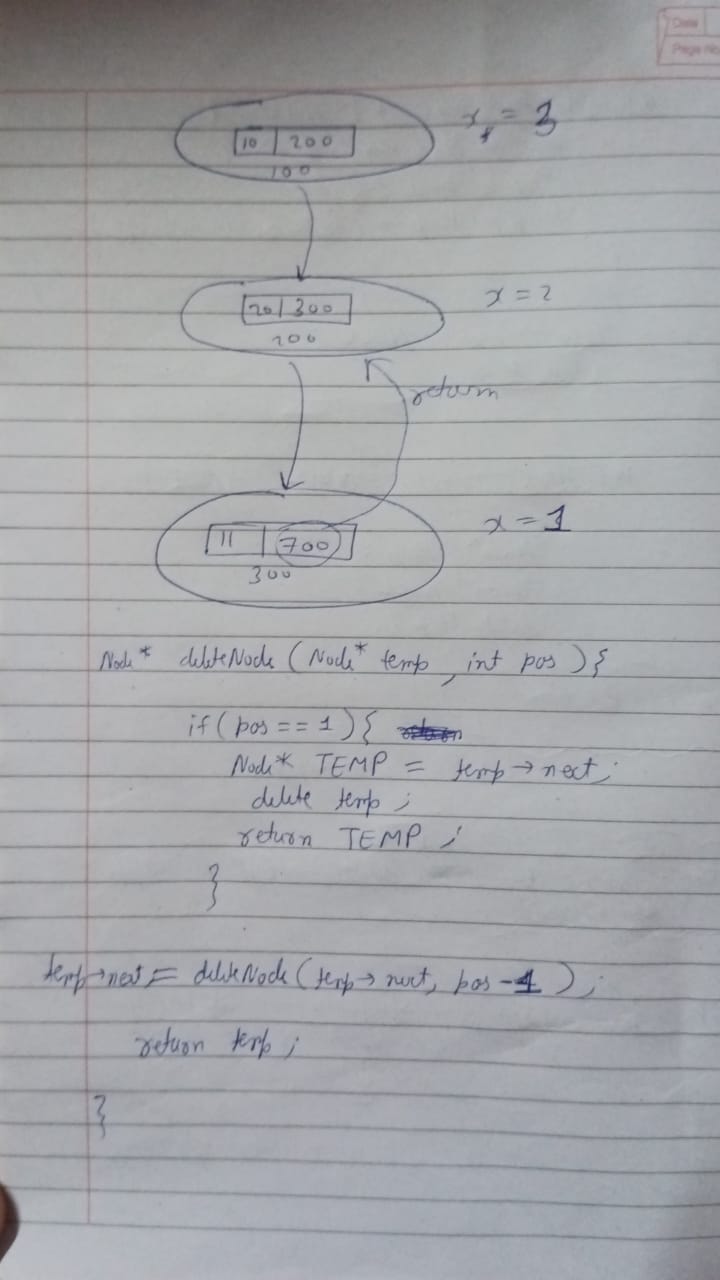 Date
Page No
10 | 200
100
x = 3
20 | 300
200
x = 2
return
11 | 700
300
x = 1
Node* deleteNode (Node* temp, int pos) {
if (pos == 1) {
Node* TEMP = temp → next;
delete temp;
return TEMP;
}
temp → next = deleteNode (temp → next, pos - 1);
return temp;
}